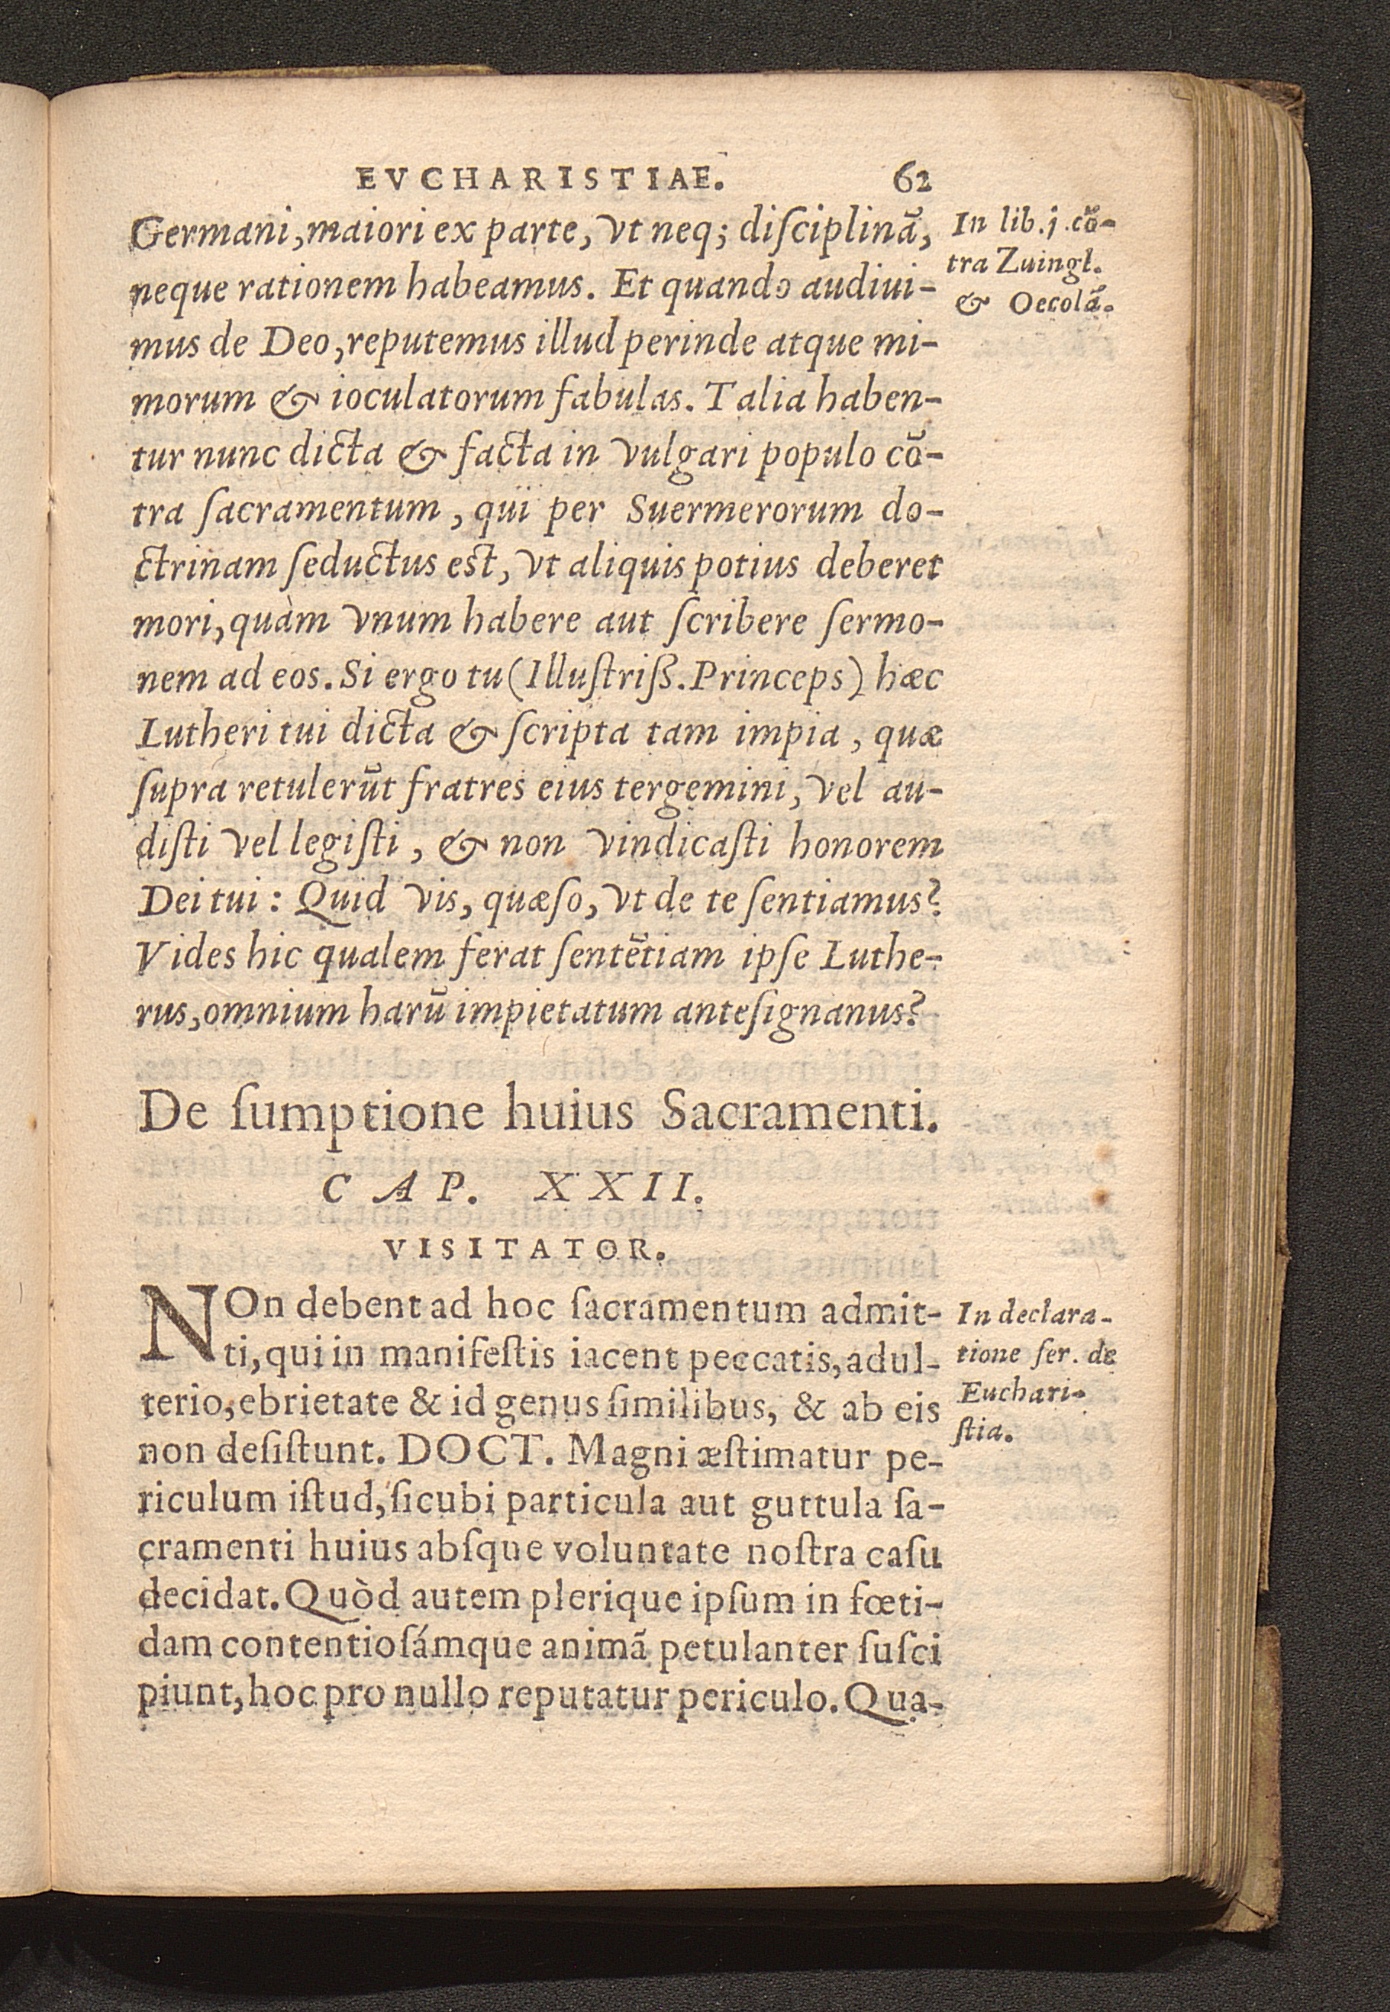 EVCHARISTIAE. 62
Germani, maiori ex parte, vt neq; diſciplinã,
neque rationem habeamus. Et quando audiui-
mus de Deo, reputemus illud perinde atque mi-
morum & ioculatorum fabulas. Talia haben-
tur nunc dicta & facta in vulgari populo cõ-
tra ſacramentum, qui per Suermerorum do-
ctrinam ſeductus est, vt aliquis potius deberet
mori, quàm vnum habere aut ſcribere ſermo-
nem ad eos. Si ergo tu (Illuſtriß. Princeps) hæc
Lutheri tui dicta & ſcripta tam impia, quæ
ſupra retulerũt fratres eius tergemini, vel au-
diſti vel legiſti, & non vindicaſti honorem
Dei tui: Quid vis, quæſo, vt de te ſentiamus?
Vides hic qualem ferat ſentẽtiam ipſe Luthe-
rus, omnium harũ impietatum anteſignanus?
In lib. j. cõ-
tra Zuingl.
& Oecolã.
De ſumptione huius Sacramenti.
CAP. XXII.
VISITATOR.
NOn debent ad hoc ſacramentum admit-
ti, qui in manifeſtis iacent peccatis, adul-
terio, ebrietate & id genus ſimilibus, & ab eis
non deſiſtunt. DOCT. Magni æſtimatur pe-
riculum iſtud, ſicubi particula aut guttula ſa-
cramenti huius abſque voluntate noſtra caſu
decidat. Quòd autem plerique ipſum in fœti-
dam contentioſámque animã petulanter ſuſci
piunt, hoc pro nullo reputatur periculo. Qua-
In declara-
tione ſer. de
Euchari-
ſtia.